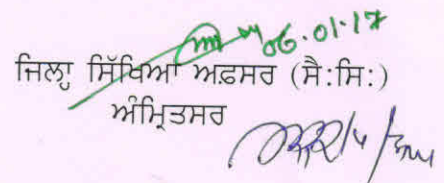 06.01.17
ਜਿਲ੍ਹਾ ਸਿੱਖਿਆ ਅਫ਼ਸਰ (ਸੈ:ਸਿ:)
ਅੰਮ੍ਰਿਤਸਰ